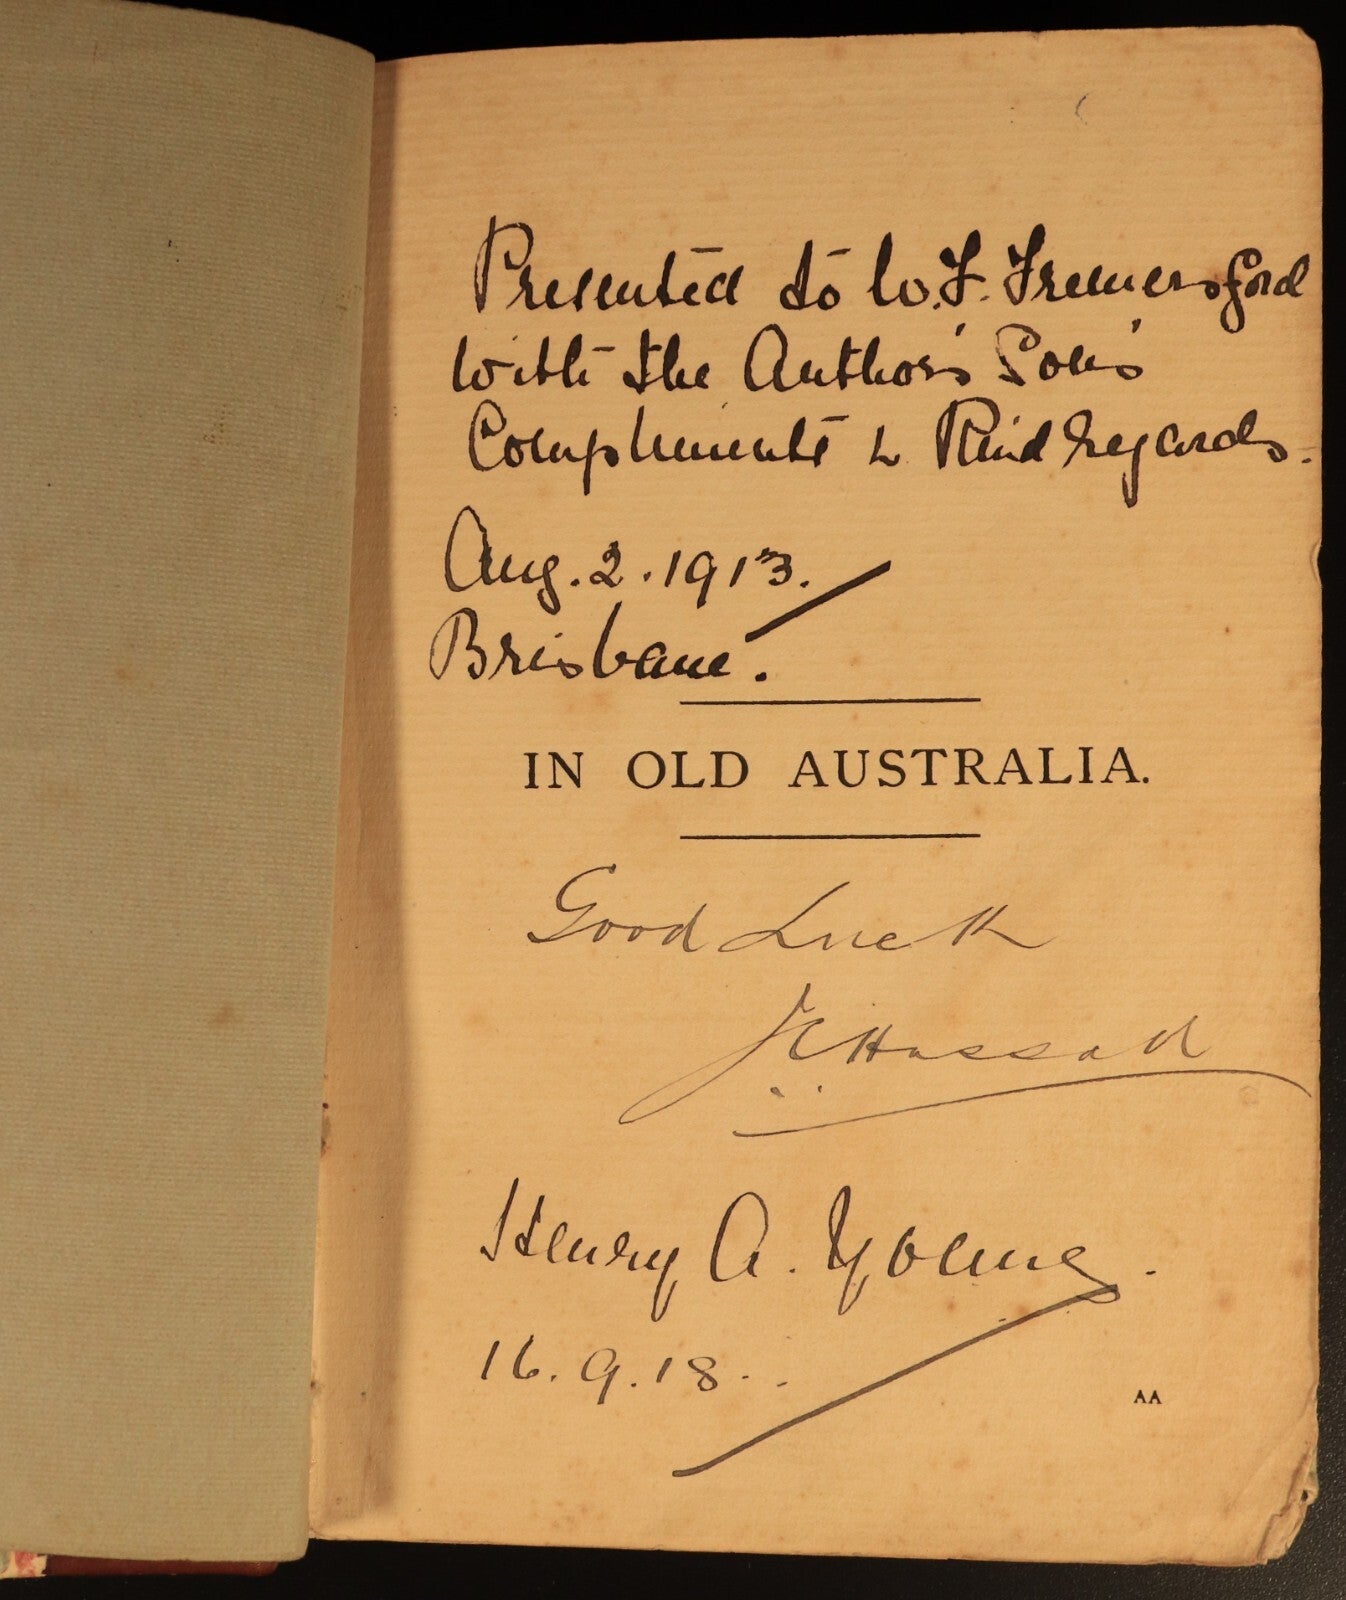 Presented to W. F.
with the Author's Son's
Compliments & Kind regards.
Aug. 2. 1913.
Brisbane.
IN OLD AUSTRALIA.
Good Luck
Henry A. Young.
16. 9. 18.
AA